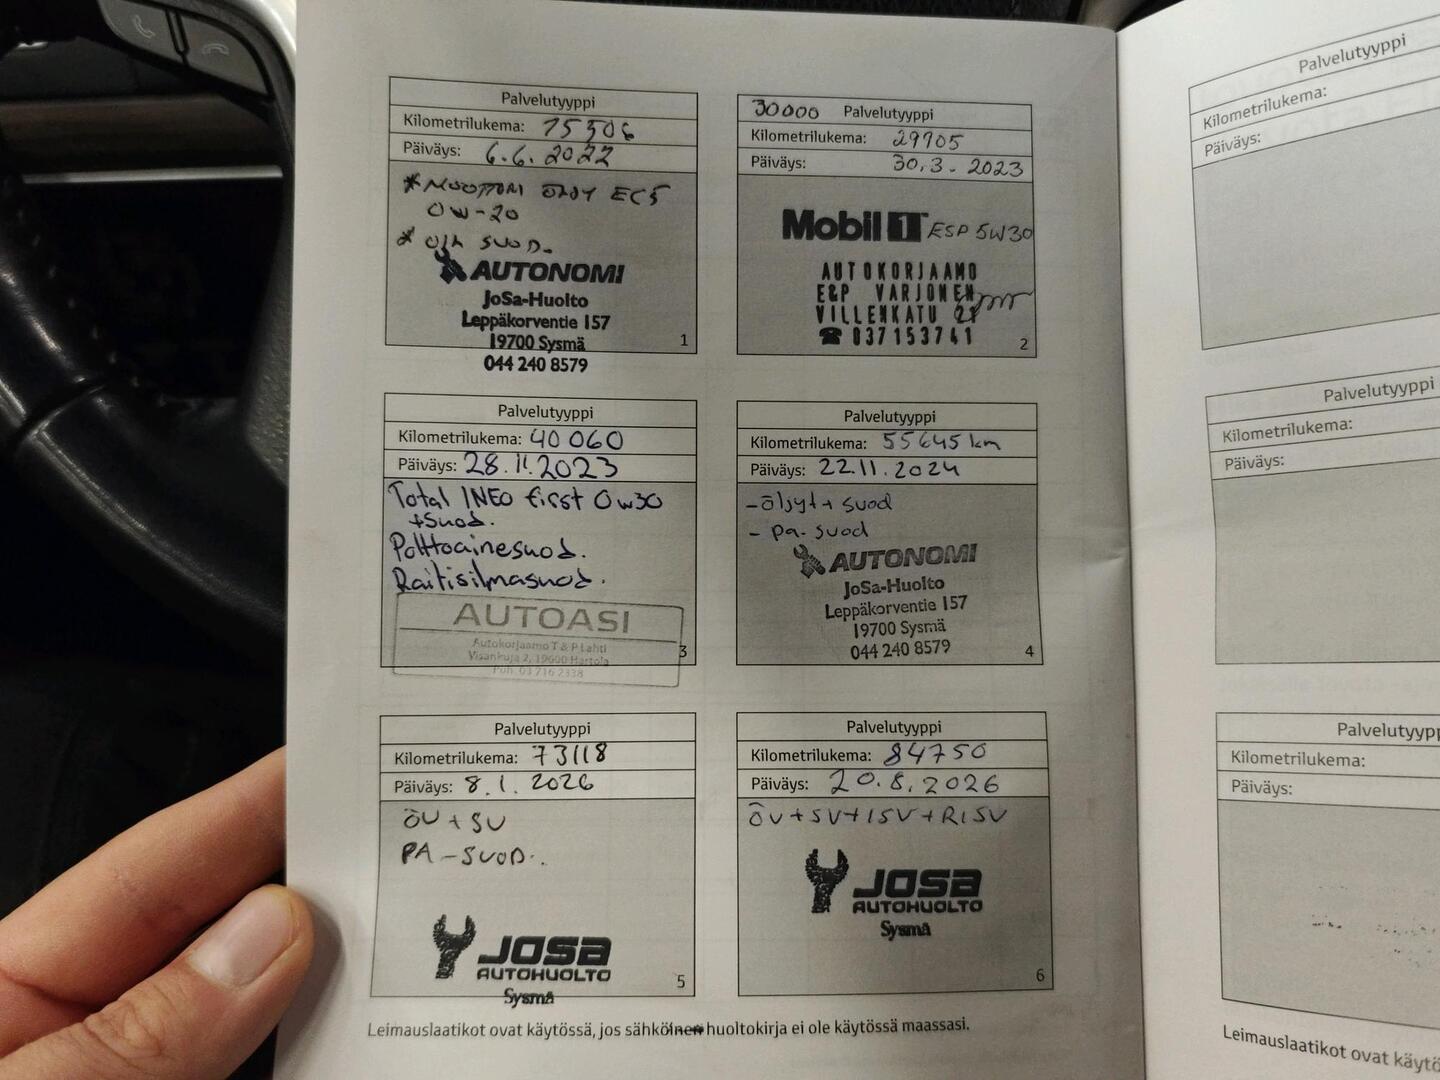 Palvelutyyppi
Kilometrilukema: 15306
Päiväys: 6.6.2022
* MOOTTORI ÖLJY EC5
0W-20
* ÖLJ SUOD.
AUTONOMI
JoSa-Huolto
Leppäkorventie 157
19700 Sysmä
044 240 8579
1
30000 Palvelutyyppi
Kilometrilukema: 29705
Päiväys: 30.3.2023
Mobil 1 ESP 5W30
AUTOKORJAAMO
E&P VARJONEN
VILLENKATU 21
☎ 037153741
2
Palvelutyyppi
Kilometrilukema: 40 060
Päiväys: 28.11.2023
Total INEO first 0w30
+Suod.
Polttoainesuod.
Raitisilmasuod.
AUTOASI
Autokorjaamo T & P Lahti
Visankuja 2, 19600 Hartola
Puh. 03 716 2338
3
Palvelutyyppi
Kilometrilukema: 55645 km
Päiväys: 22.11.2024
- öljyt + suod
- pa-suod
AUTONOMI
JoSa-Huolto
Leppäkorventie 157
19700 Sysmä
044 240 8579
4
Palvelutyyppi
Kilometrilukema: 73118
Päiväys: 8.1.2026
ÖV + SV
PA-SUOD.
JOSA
AUTOHUOLTO
Sysmä
5
Palvelutyyppi
Kilometrilukema: 84750
Päiväys: 20.8.2026
ÖV+SV+ISV+RISV
JOSA
AUTOHUOLTO
Sysmä
6
Leimauslaatikot ovat käytössä, jos sähköinen huoltokirja ei ole käytössä maassasi.
Palvelutyyppi
Kilometrilukema:
Päiväys:
Palvelutyyppi
Kilometrilukema:
Päiväys:
Palvelutyypp
Kilometrilukema:
Päiväys:
Leimauslaatikot ovat käytö